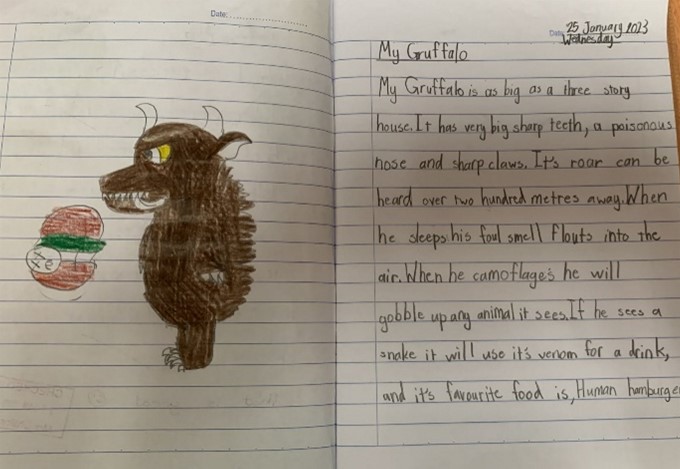 Date:
Date:
25 January 2023
Wednesday
My Gruffalo
My Gruffalo is as big as a three story
house. It has very big sharp teeth, a poisonous
nose and sharp claws. It's roar can be
heard over two hundred metres away. When
he sleeps his foul smell flouts into the
air. When he camoflage's he will
gobble up any animal it sees. If he sees a
snake it will use it's venom for a drink,
and it's favourite food is, Human hamburge